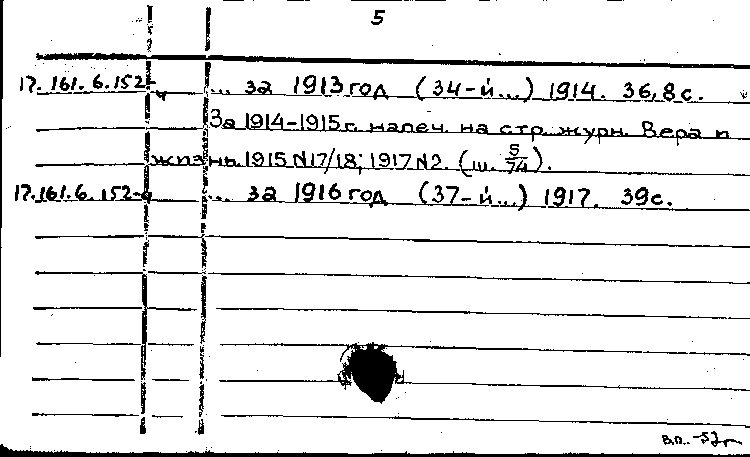 5
17.161.6.152-4 ... за 1913 год (34-й...) 1914. 36,8 с.
За 1914-1915 г. напеч. на стр. журн. Вера и
жизнь 1915 N17/18; 1917 N2. (ш. 5/74).
17.161.6.152-4 ... за 1916 год (37-й...) 1917. 39 с.
В.П.-52г